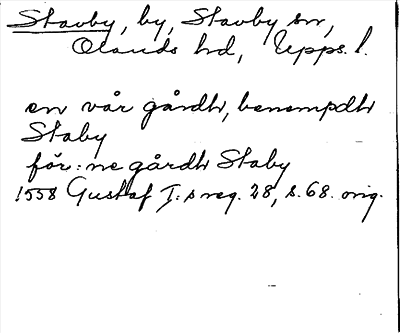 Stavby, by, Stavby sn,
Olands hd, Upps. l.
en vår gårdh, benempdh
Staby
för:ne gårdh Staby
1558 Gustaf I:s reg. 28, s. 68. orig.